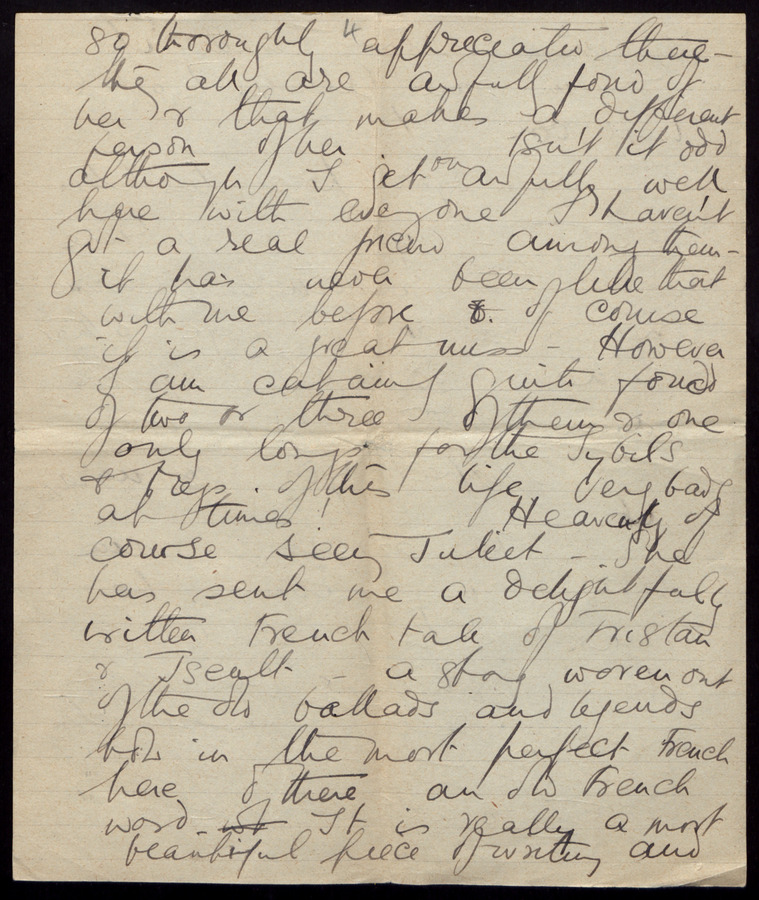 so thoroughly 4 appreciates them -
they all are awfully fond of
her & that makes a different
person of her. Isn't it odd
although I get on awfully well
here with everyone I haven't
got a real friend among them -
it has never been like that
with me before & of course
it is a great miss - However
I am certainly quite fond
of two or three of them & one
only longs for the Sybils
& of this life very badly
at times! Heavenly of
course seeing Juliet - She
has sent me a delightfully
written French tale of Tristan
& Iseult - a story woven out
of the old ballads and legends
told in the most perfect French
here & there an old French
word It is really a most
beautiful piece of writing and